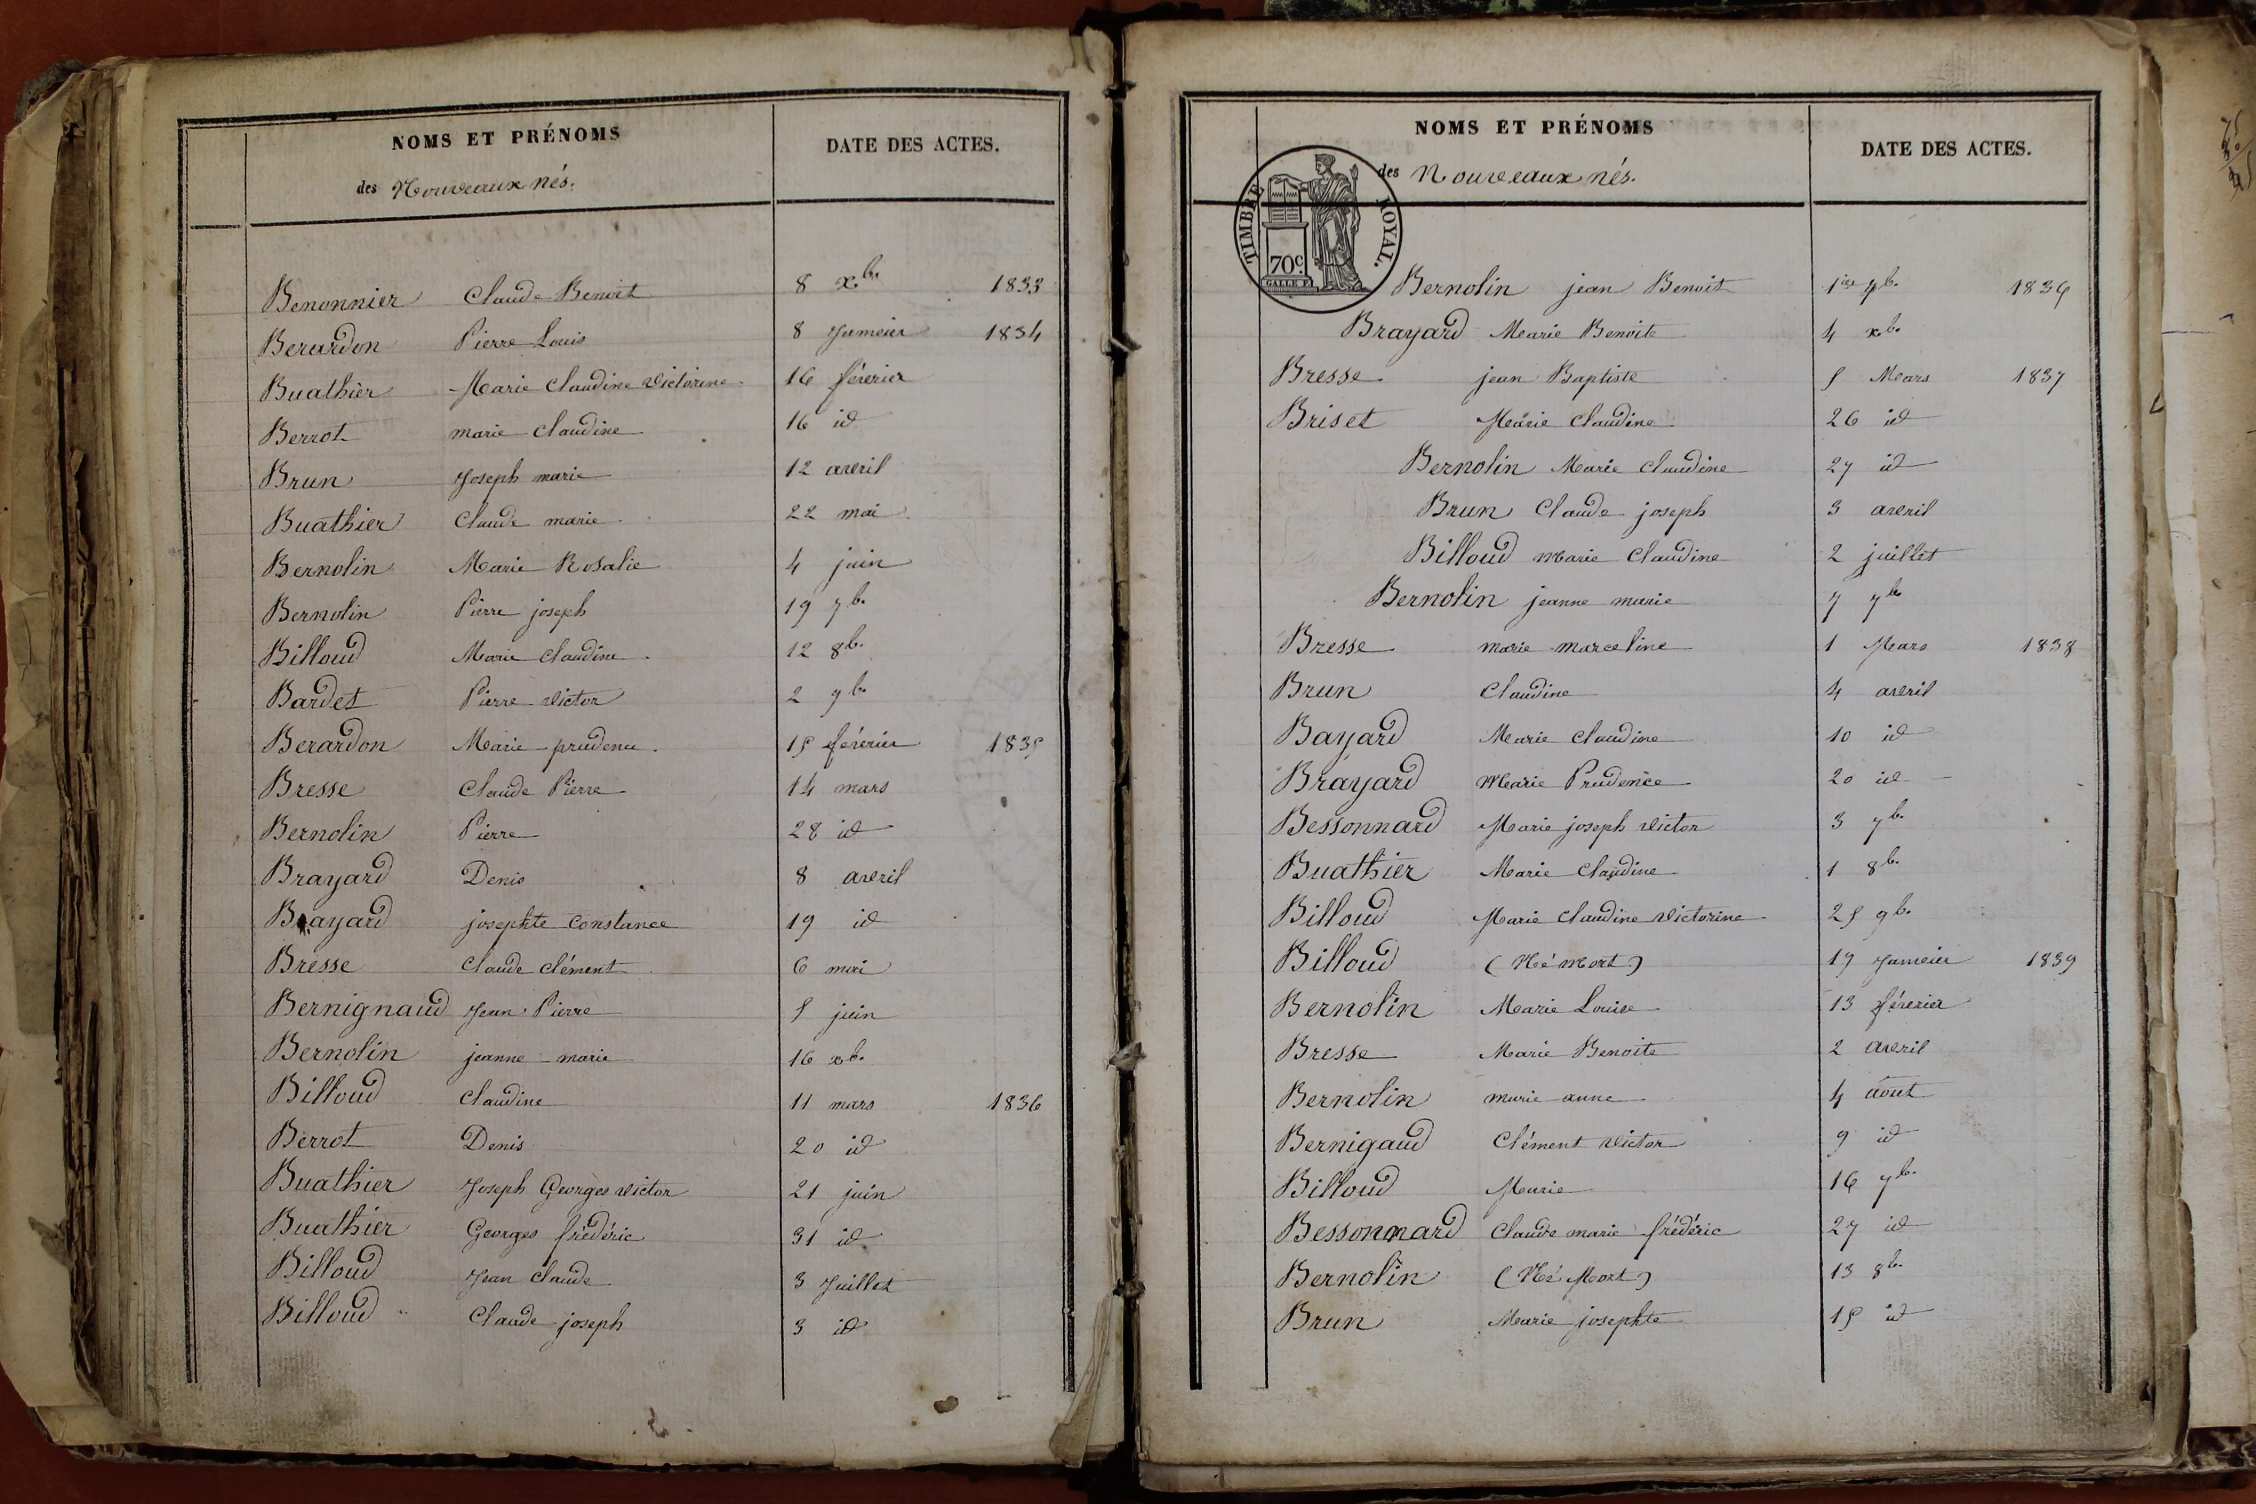 NOMS ET PRÉNOMS
DATE DES ACTES.
des Nouveaux nés.
Benonnier Claude Benoit 8 xb. 1833
Berardon Pierre Louis 8 Janvier 1834
Buathier Marie Claudine Victorine 16 février
Berrot marie Claudine 16 id
Brun Joseph marie 12 avril
Buathier Claude marie 22 mai
Bernolin Marie Rosalie 4 juin
Bernolin Pierre joseph 19 7b.
Billoud Marie Claudine 12 8b.
Bardet Pierre Victor 2 9b.
Berardon Marie prudence 15 février 1835
Bresse Claude Pierre 14 mars
Bernolin Pierre 28 id
Brayard Denis 8 avril
Brayard josephte Constance 19 id
Bresse Claude Clément 6 mai
Bernignaud Jean Pierre 5 juin
Bernolin jeanne marie 16 xb.
Billoud Claudine 11 mars 1836
Berrot Denis 20 id
Buathier Joseph Georges Victor 21 juin
Buathier Georges frédéric 31 id
Billoud Jean Claude 3 Juillet
Billoud Claude joseph 3 id
NOMS ET PRÉNOMS
DATE DES ACTES.
des Nouveaux nés.
TIMBRE ROYAL.
70c.
GALLE F.
Bernolin jean Benoit 1er 9b. 1836
Brayard Marie Benoite 4 xb.
Bresse jean Baptiste 5 Mars 1837
Briset Marie Claudine 26 id
Bernolin Marie Claudine 27 id
Brun Claude joseph 3 avril
Billoud Marie Claudine 2 juillet
Bernolin jeanne marie 7 7b
Bresse marie marceline 1 Mars 1838
Brun Claudine 4 avril
Bayard Marie Claudine 10 id
Brayard Marie Prudence 20 id
Bessonnard Marie joseph Victor 3 7b.
Buathier Marie Claudine 1 8b.
Billoud Marie Claudine Victorine 25 9b.
Billoud (Né Mort) 17 Janvier 1839
Bernolin Marie Louise 13 février
Bresse Marie Benoite 2 avril
Bernolin marie anne 4 aout
Bernigaud Clément Victor 9 id
Billoud Marie 16 7b.
Bessonnard Claude marie frédéric 27 id
Bernolin (Né Mort) 13 8b.
Brun Marie josephte 15 id